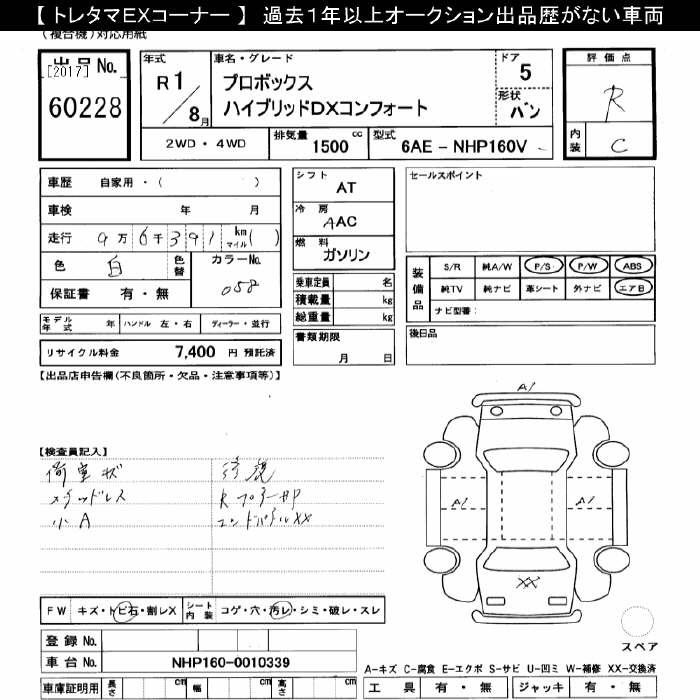 【 トレタマEXコーナー 】 過去１年以上オークション出品歴がない車両
(複合機)対応用紙
出品 No.
[2017]
60228
年式
R 1/8月
車名・グレード
プロボックス
ハイブリッドDXコンフォート
ドア
5
形状
バン
評価点
R
内装
C
2WD・4WD
排気量 1500 cc
型式 6AE - NHP160V
車歴 自家用・( )
車検 年 月
走行 9万6千391 km マイル ( )
色 白 色替
カラーNo.
058
保証書 有・無
シフト AT
冷房 AAC
燃料 ガソリン
乗車定員 名
積載量 kg
総重量 kg
書類期限
月 日
セールスポイント
装備品
S/R 純A/W P/S P/W ABS
純TV 純ナビ 革シート 外ナビ エアB
ナビ型番:
後日品
モデル年式 年 ハンドル 左・右 ディーラー・並行
リサイクル料金 7,400 円 預託済
【出品店申告欄(不良箇所・欠品・注意事項等)】
【検査員記入】
荷室状
スタッドレス
小A
修説
Rフロアー部P
エンドパネルXX
A1
A1
A1
XX
FW キズ・トビ石・割レX
シート内装 コゲ・穴・汚レ・シミ・破レ・スレ
登録 No.
車台 No. NHP160-0010339
車庫証明用 長さ cm 幅 cm 高さ cm
スペア
A-キズ C-腐食 E-エクボ S-サビ U-凹ミ W-補修 XX-交換済
工具 有・無 ジャッキ 有・無